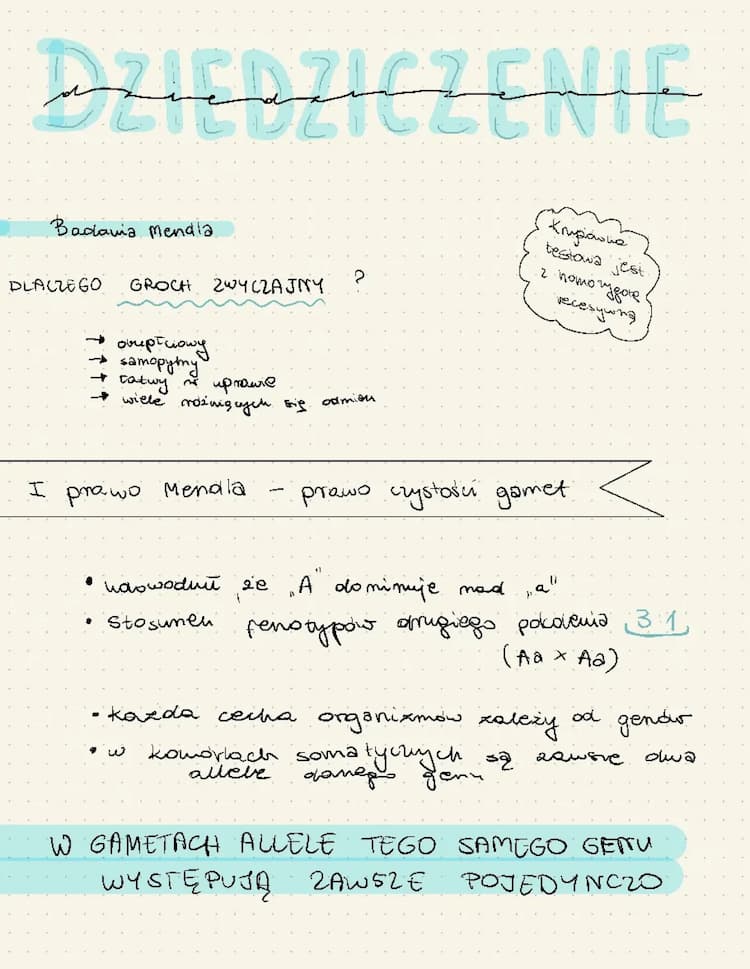 DZIEDZICZENIE
dziedziczenie
Badania Mendla
Krzyżówka
testowa jest
z homozygotą
recesywną
DLACZEGO GROCH ZWYCZAJNY ?
→ obupłciowy
→ samopylny
→ łatwy w uprawie
→ wiele różniących się odmian
I prawo Mendla – prawo czystości gamet
• udowodnił że „A" dominuje nad „a"
• stosunek fenotypów drugiego pokolenia 3 1
(Aa × Aa)
• każda cecha organizmów zależy od genów
• w komórkach somatycznych są zawsze dwa
allele danego genu
W GAMETACH ALLELE TEGO SAMEGO GENU
WYSTĘPUJĄ ZAWSZE POJEDYNCZO